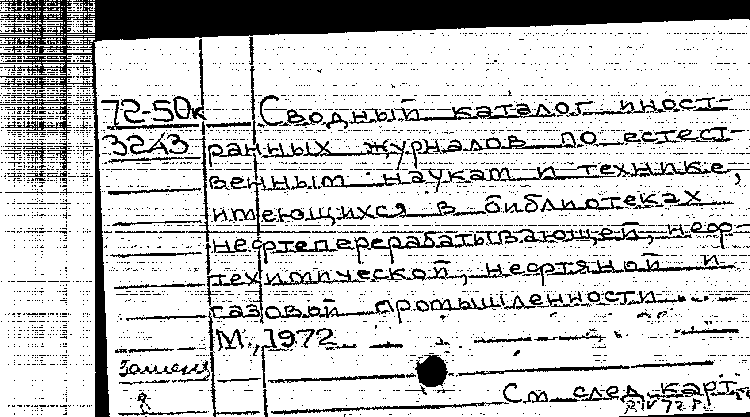 72-50к Сводный каталог иност-
3243 ранных журналов по естест-
венным наукам и технике,
имеющихся в библиотеках
нефтеперерабатывающей, неф-
техимической, нефтяной и
газовой промышленности
М., 1972
См след. карт.